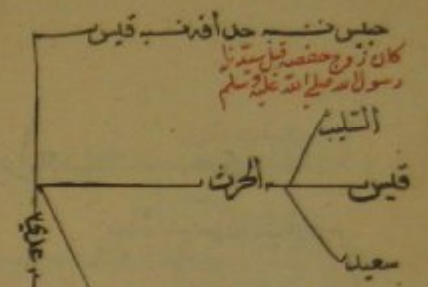 خنيس بن حذافه بن قيس
كان زوج حفصه قبل سيدنا
رسول الله صلى الله عليه وسلم
السليب
الحرث
قيس
سعيد
عدي